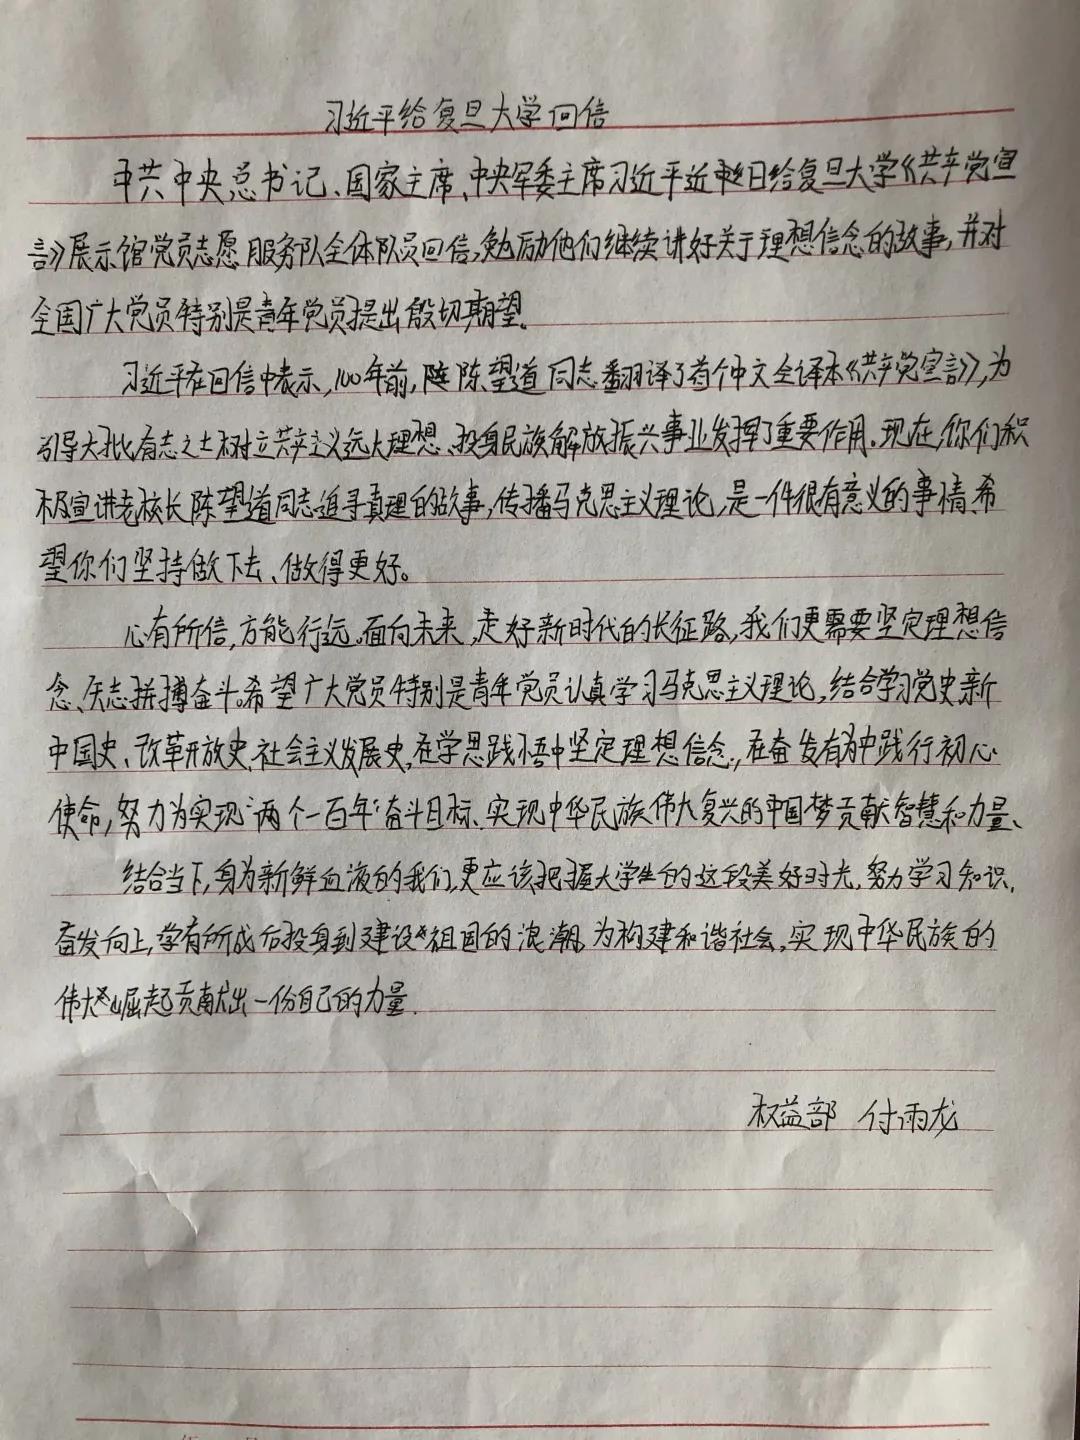 习近平给复旦大学回信
中共中央总书记、国家主席、中央军委主席习近平近日给复旦大学《共产党宣
言》展示馆党员志愿服务队全体队员回信,勉励他们继续讲好关于理想信念的故事,并对
全国广大党员特别是青年党员提出殷切期望。
习近平在回信中表示,100年前,陈望道同志翻译了首个中文全译本《共产党宣言》,为
引导大批有志之士树立共产主义远大理想、投身民族解放振兴事业发挥了重要作用。现在,你们积
极宣讲老校长陈望道同志追寻真理的故事,传播马克思主义理论,是一件很有意义的事情、希
望你们坚持做下去、做得更好。
心有所信,方能行远。面向未来,走好新时代的长征路,我们更需要坚定理想信
念、矢志拼搏奋斗。希望广大党员特别是青年党员认真学习马克思主义理论,结合学习党史、新
中国史、改革开放史、社会主义发展史,在学思践悟中坚定理想信念,在奋发有为中践行初心
使命,努力为实现“两个一百年”奋斗目标、实现中华民族伟大复兴的中国梦贡献智慧和力量、
结合当下,身为新鲜血液的我们,更应该把握大学生的这段美好时光,努力学习知识,
奋发向上,学有所成后投身到建设祖国的浪潮。为构建和谐社会,实现中华民族的
伟大崛起贡献出一份自己的力量.
权益部 付雨龙